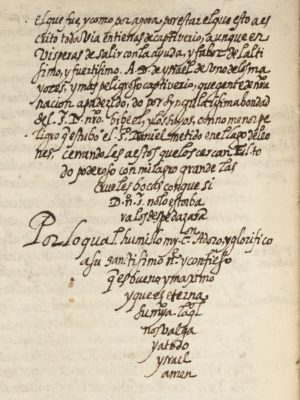 el que fue, y como por agora, por estar el que esto a es
crito toda via en tierras de captiverio, aunque en
visperas de salir con la ayuda, y favor del alti
simo, y fuertisimo. A. D. de ysrael de uno de los ma
yores, y mas peligroso captiverio, que gente ni na
nacion a padezido, do por singularisima bondad
del S. D. nro. el y los hijos, con no menos pe
ligro q̃ estubo el S. Daniel metido en el lago de leo
nes, cerrando les a estos que los cercan el to
do poderoso con milagro grande las
crueles bocas con que si
D. N. S. no lo estorba
va los despedazara
Por lo qual humillo my Con Adoro, y glorifico
a su santisimo ne y confieso
q̃ es bueno y maximo
y que es eterna
su mya la ql
nos valga
y a todo
ysrael
amen